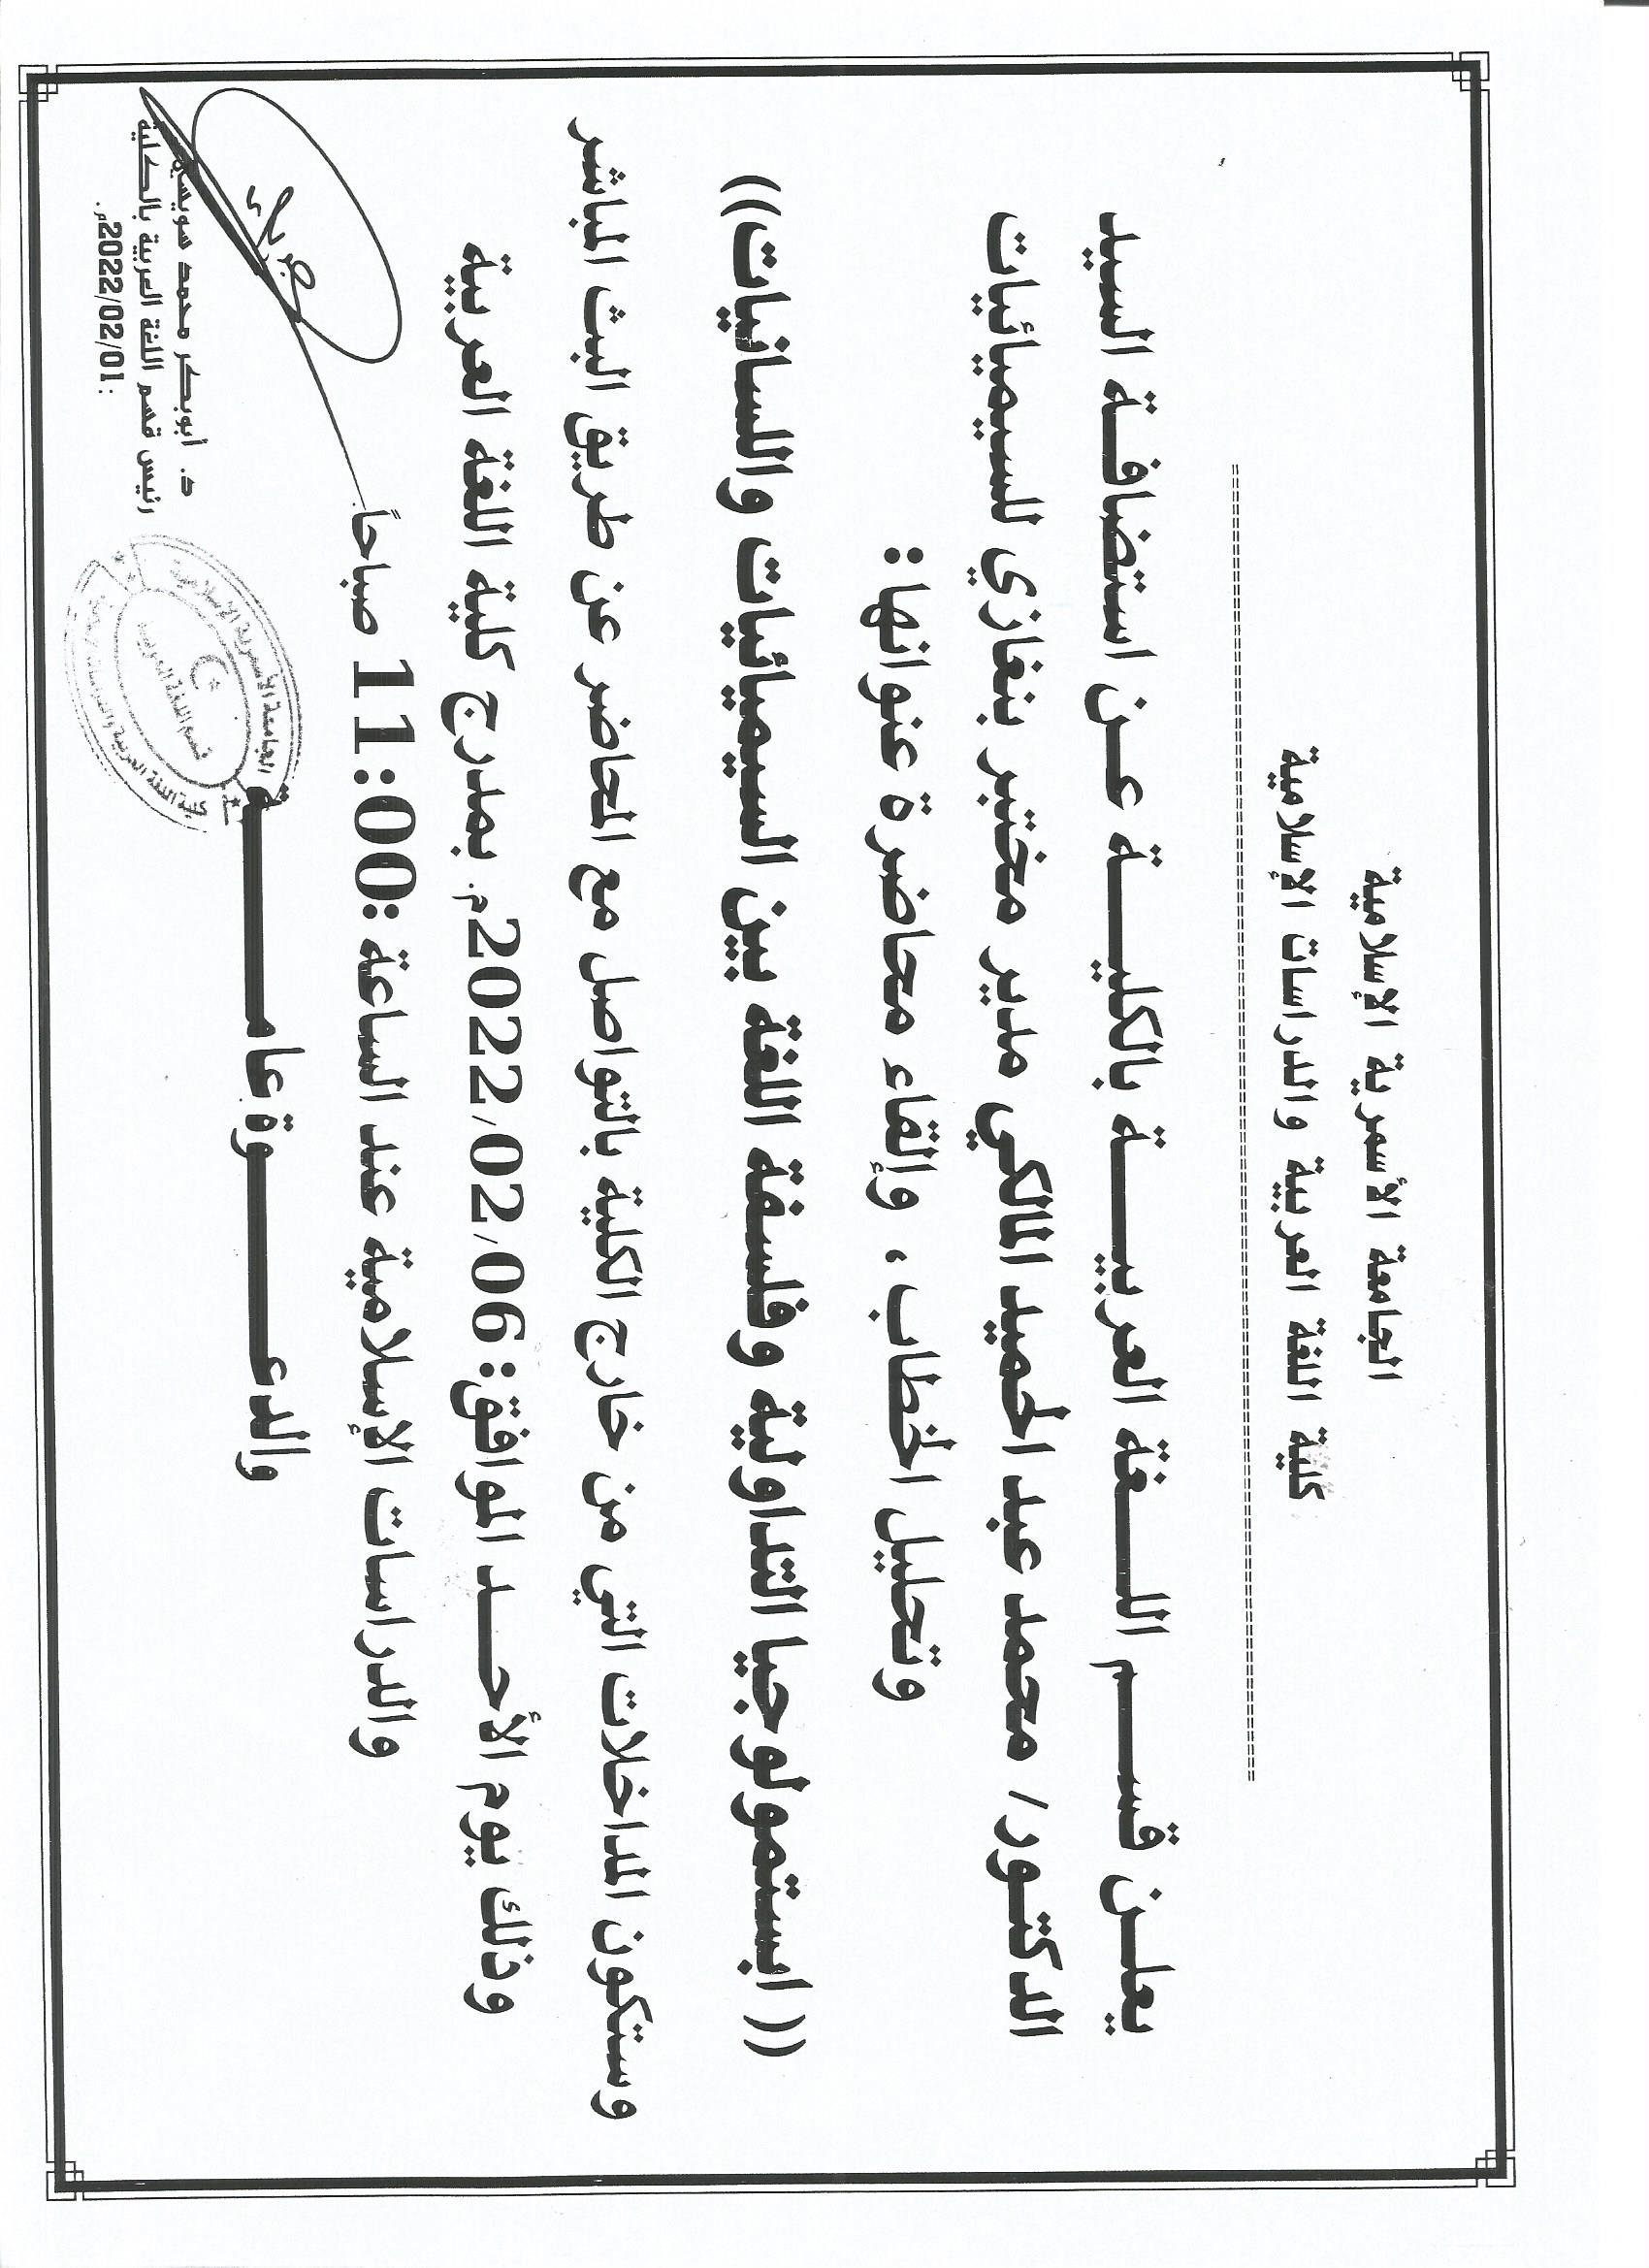 الجامعة الأسمرية الإسلامية
كلية اللغة العربية والدراسات الإسلامية
يعلن قسم اللغة العربية بالكلية عن استضافة السيد
الدكتور/ محمد عبد الحميد المالكي مدير مختبر بنغازي للسيميائيات
وتحليل الخطاب، وإلقاء محاضرة عنوانها:
(( ابستمولوجيا التداولية وفلسفة اللغة بين السيميائيات واللسانيات))
وستكون المداخلات التي من خارج الكلية بالتواصل مع المحاضر عن طريق البث المباشر
وذلك يوم الأحد الموافق: 2022/02/06م. بمدرج كلية اللغة العربية
والدراسات الإسلامية عند الساعة :11:00 صباحاً.
والدعوة عامة
د. أبوبكر محمد سويسي
رئيس قسم اللغة العربية بالكلية
2022/02/01م.
الجامعة الأسمرية الإسلامية
قسم اللغة العربية
كلية اللغة العربية